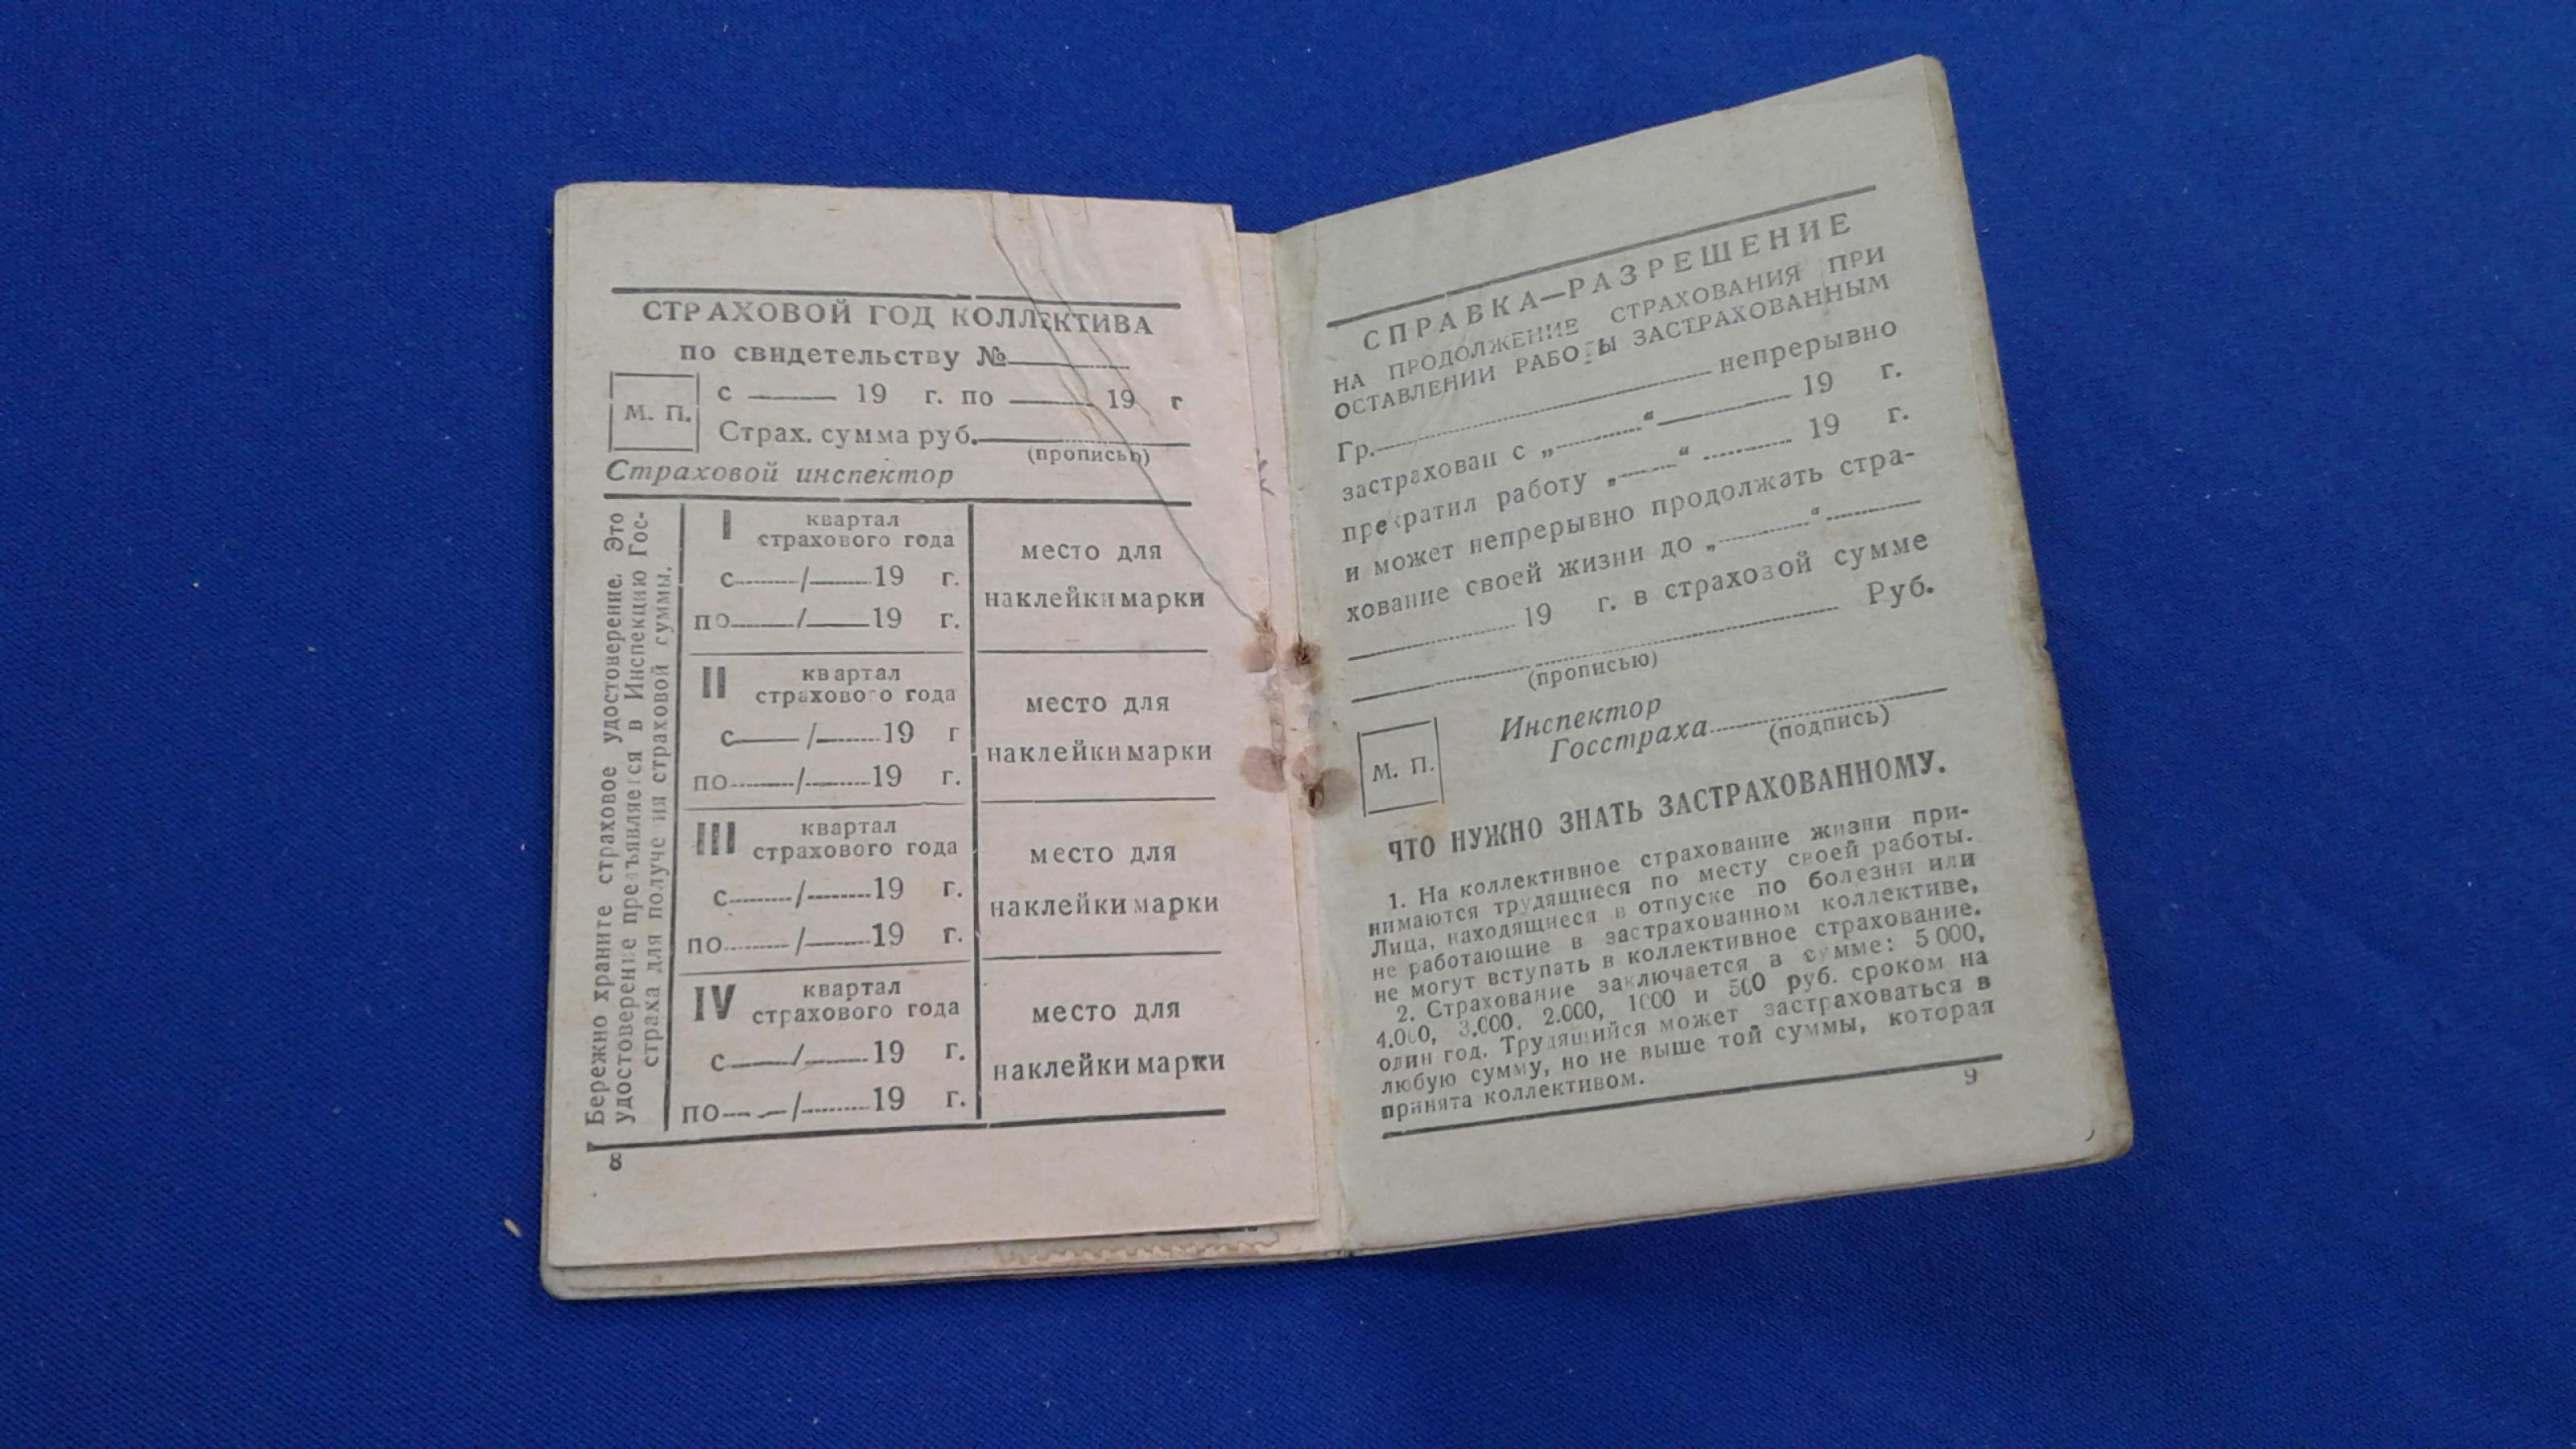 СТРАХОВОЙ ГОД КОЛЛЕКТИВА
по свидетельству №
М. П.
с 19 г. по 19 г
Страх. сумма руб.
(прописью)
Страховой инспектор
Бережно храните страховое удостоверение. Это
удостоверение предъявляется в Инспекцию Гос-
страха для получения страховой суммы.
I квартал
страхового года
с / 19 г.
по / 19 г.
место для
наклейки марки
II квартал
страхового года
с / 19 г
по / 19 г.
место для
наклейки марки
III квартал
страхового года
с / 19 г.
по / 19 г.
место для
наклейки марки
IV квартал
страхового года
с / 19 г.
по / 19 г.
место для
наклейки марки
8
СПРАВКА—РАЗРЕШЕНИЕ
НА ПРОДОЛЖЕНИЕ СТРАХОВАНИЯ ПРИ
ОСТАВЛЕНИИ РАБОТЫ ЗАСТРАХОВАННЫМ
Гр. непрерывно
застрахован с „ “ 19 г.
прекратил работу „ “ 19 г.
и может непрерывно продолжать стра-
хование своей жизни до „ “
19 г. в страховой сумме
Руб.
(прописью)
М. П.
Инспектор
Госстраха
(подпись)
ЧТО НУЖНО ЗНАТЬ ЗАСТРАХОВАННОМУ.
1. На коллективное страхование жизни при-
нимаются трудящиеся по месту своей работы.
Лица, находящиеся в отпуске по болезни или
не работающие в застрахованном коллективе,
не могут вступать в коллективное страхование.
2. Страхование заключается в сумме: 5 000,
4.000, 3.000, 2.000, 1000 и 500 руб. сроком на
один год. Трудящийся может застраховаться в
любую сумму, но не выше той суммы, которая
принята коллективом.
9